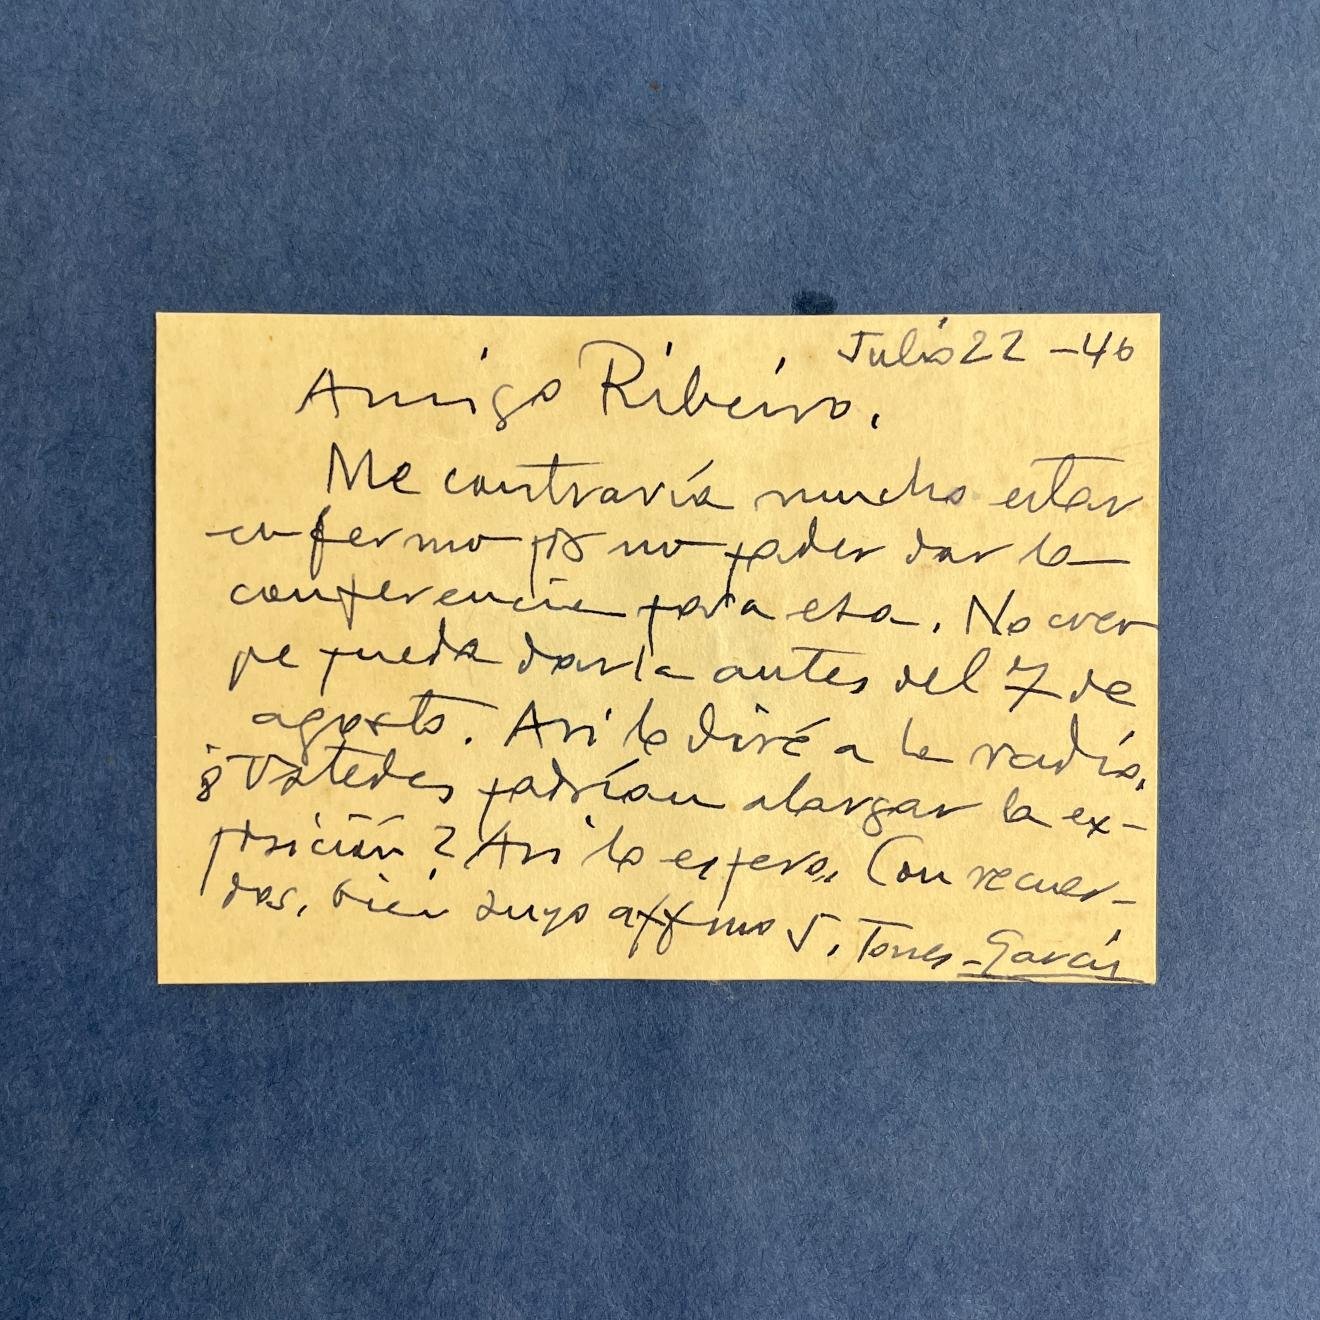 Julio 22 - 46
Amigo Ribeiro,
Me contraría mucho estar
enfermo no poder dar la
conferencia para esa. No creo
pueda darla antes del 7 de
agosto. Así lo diré a la radio.
¿Ustedes podrían alargar la ex-
posición? Así lo espero. Con recuer-
dos, bien suyo affmo J. Torres-García